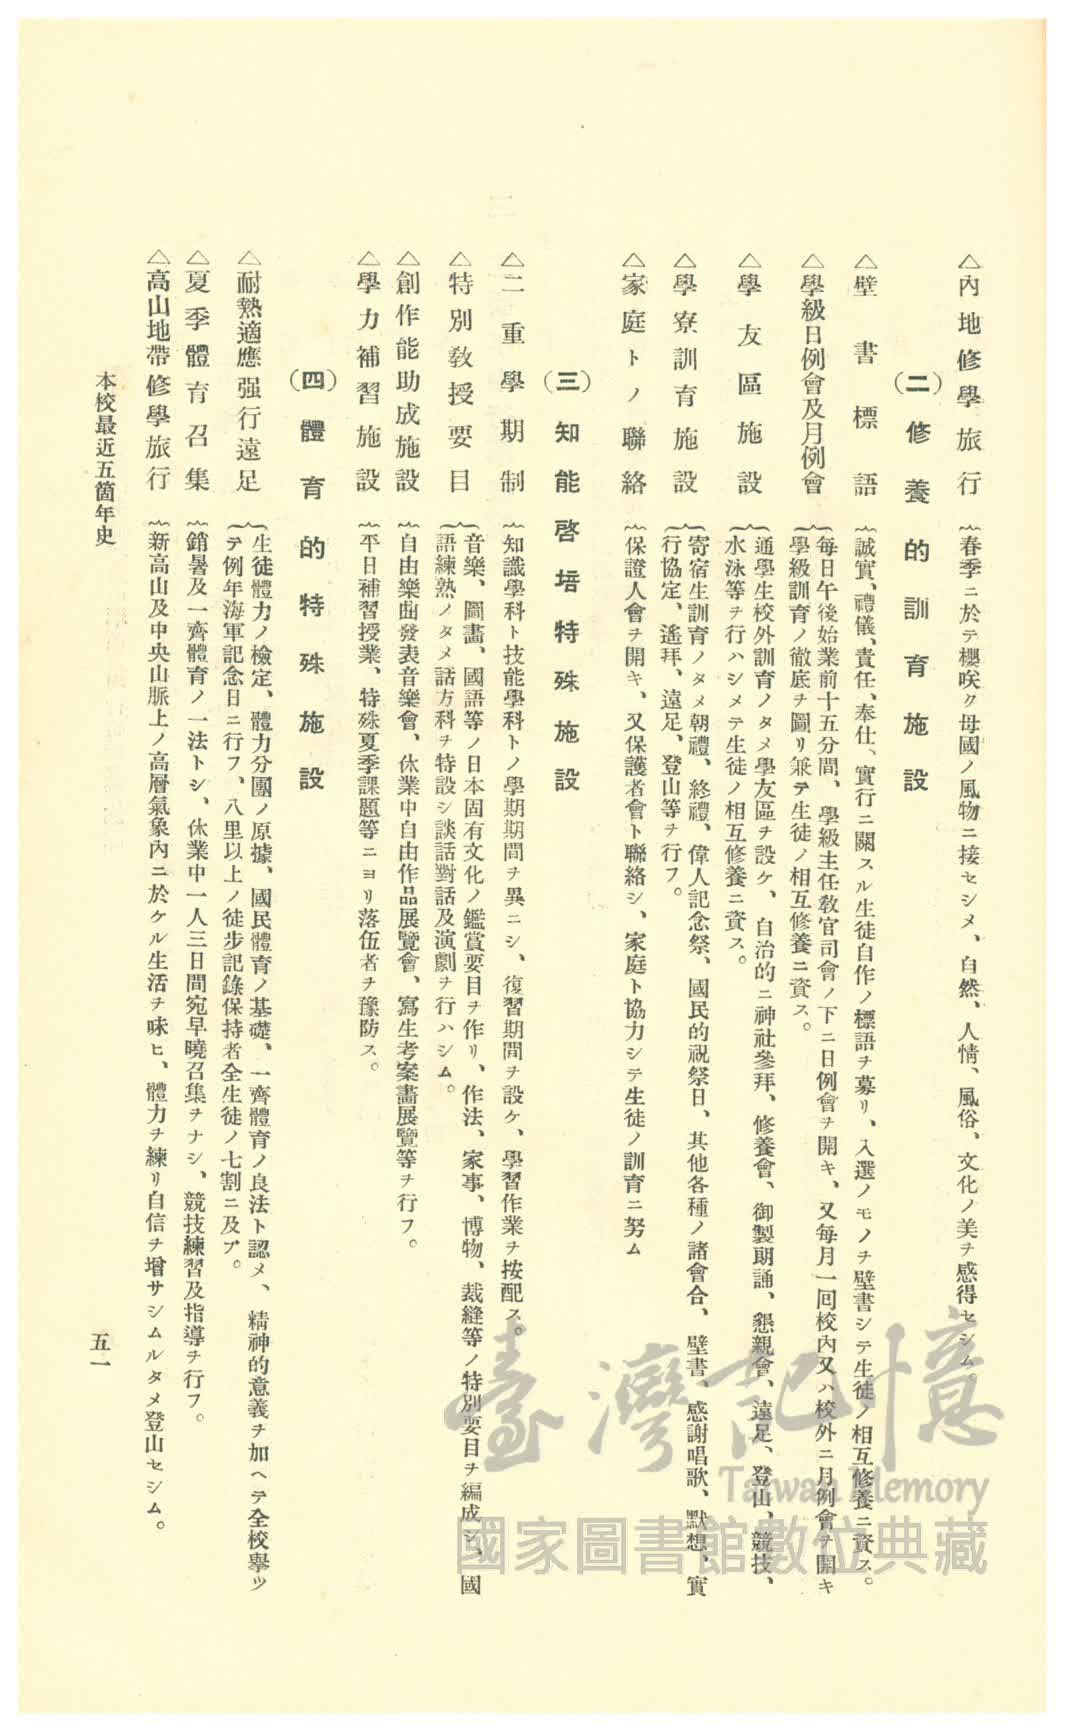 △內地修學旅行 春季ニ於テ櫻咲ク母國ノ風物ニ接セシメ、自然、人情、風俗、文化ノ美ヲ感得セシム。
(二)修養的訓育施設
△壁書標語 誠實、禮儀、責任、奉仕、實行ニ關スル生徒自作ノ標語ヲ募リ、入選ノモノヲ壁書シテ生徒ノ相互修養ニ資ス。
△學級日例會及月例會 每日午後始業前十五分間、學級主任敎官司會ノ下ニ日例會ヲ開キ、又每月一回校內又ハ校外ニ月例會ヲ開キ
學級訓育ノ徹底ヲ圖リ兼テ生徒ノ相互修養ニ資ス。
△學友區施設 通學生校外訓育ノタメ學友區ヲ設ケ、自治的ニ神社參拜、修養會、御製朗誦、懇親會、遠足、登山、競技、
水泳等ヲ行ハシメテ生徒ノ相互修養ニ資ス。
△學寮訓育施設 寄宿生訓育ノタメ朝禮、終禮、偉人記念祭、國民的祝祭日、其他各種ノ諸會合、壁書、感謝唱歌、默想、實
行協定、遙拜、遠足、登山等ヲ行フ。
△家庭トノ聯絡 保證人會ヲ開キ、又保護者會ト聯絡シ、家庭ト協力シテ生徒ノ訓育ニ努ム
(三)知能啓培特殊施設
△二重學期制 知識學科ト技能學科トノ學期期間ヲ異ニシ、復習期間ヲ設ケ、學習作業ヲ按配ス。
△特別敎授要目 音樂、圖畫、國語等ノ日本固有文化ノ鑑賞要目ヲ作リ、作法、家事、博物、裁縫等ノ特別要目ヲ編成シ、國
語練熟ノタメ話方科ヲ特設シ談話對話及演劇ヲ行ハシム。
△創作能助成施設 自由樂曲發表音樂會、休業中自由作品展覽會、寫生考案畫展覽等ヲ行フ。
△學力補習施設 平日補習授業、特殊夏季課題等ニヨリ落伍者ヲ豫防ス。
(四)體育的特殊施設
△耐熱適應强行遠足 生徒體力ノ檢定、體力分團ノ原據、國民體育ノ基礎、一齊體育ノ良法ト認メ、精神的意義ヲ加ヘテ全校擧ツ
テ例年海軍記念日ニ行フ、八里以上ノ徒步記錄保持者全生徒ノ七割ニ及ブ。
△夏季體育召集 銷暑及一齊體育ノ一法トシ、休業中一人三日間宛早曉召集ヲナシ、競技練習及指導ヲ行フ。
△高山地帶修學旅行 新高山及中央山脈上ノ高層氣象內ニ於ケル生活ヲ味ヒ、體力ヲ練リ自信ヲ增サシムルタメ登山セシム。
本校最近五箇年史
五一
臺灣記憶
Taiwan Memory
國家圖書館數位典藏